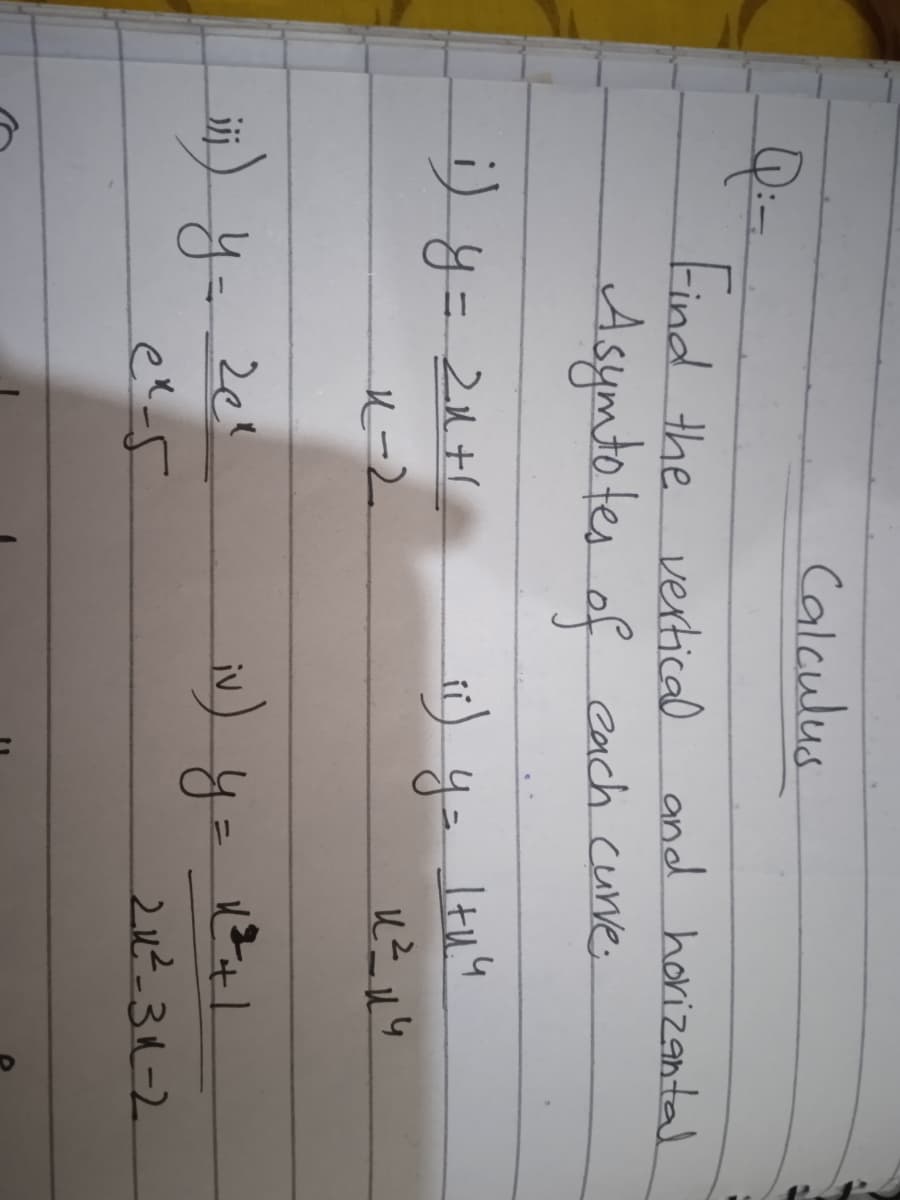 Calculus
Q:-
Find the vertical and horizantal
Asymtotes of each curve:
i) y = 2x+1 / x-2    ii) y = 1+x⁴ / x²-x⁴
iii) y = 2eˣ / eˣ-5    iv) y = x²+1 / 2x²-3x-2